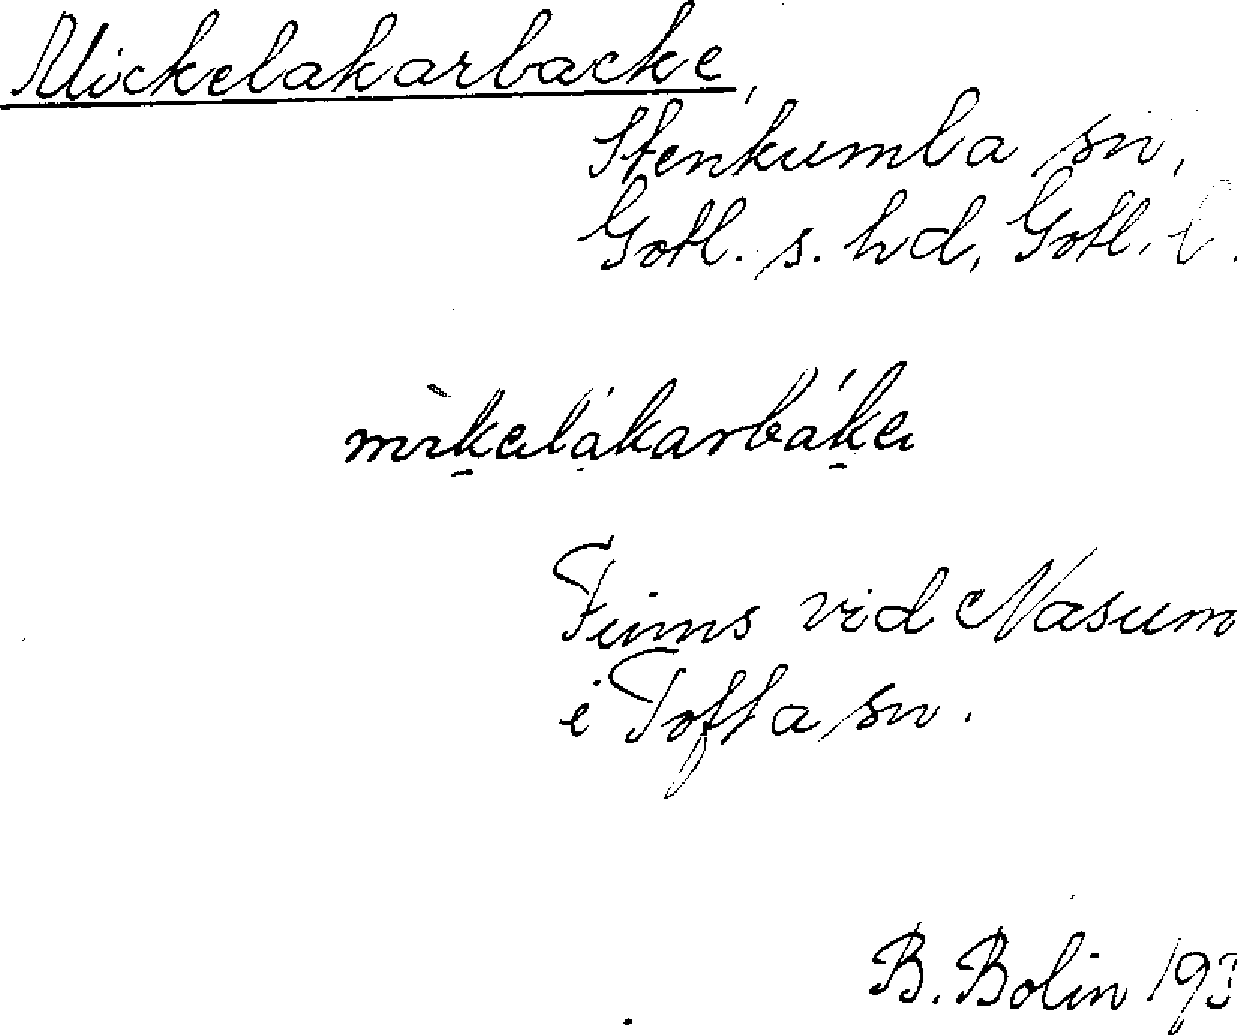 Mickelakarbacke,
Stenkumla sn,
Gotl. s. hd, Gotl. l.
mìkelákarbáka
Finns vid Nasume
i Tofta sn.
B. Bolin 193